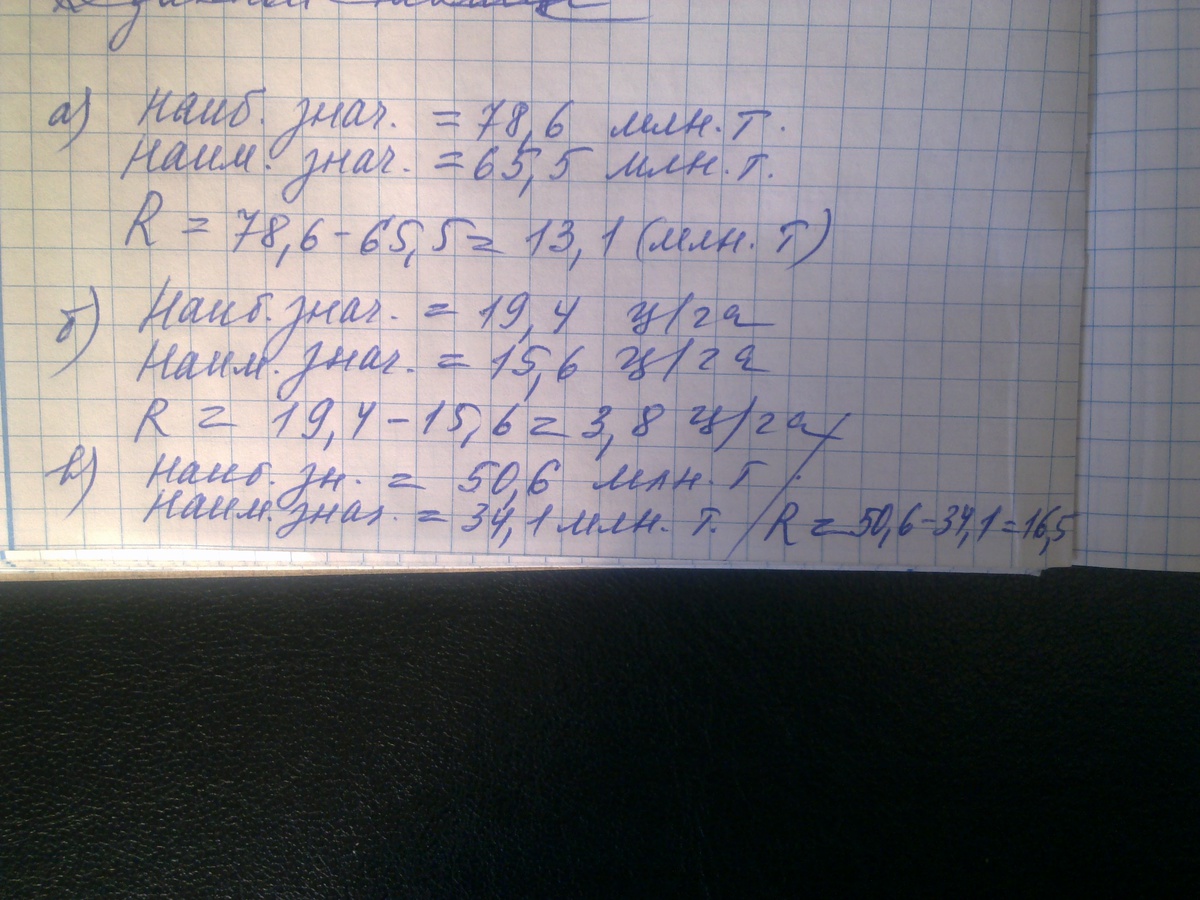 а) Наиб. знач. = 78,6 млн. т.
Наим. знач. = 65,5 млн. т.
R = 78,6 - 65,5 = 13,1 (млн. т)
б) Наиб. знач. = 19,4 ц/га
Наим. знач. = 15,6 ц/га
R = 19,4 - 15,6 = 3,8 ц/га
в) Наиб. зн. = 50,6 млн. т
Наим. знач. = 34,1 млн. т. / R = 50,6 - 34,1 = 16,5